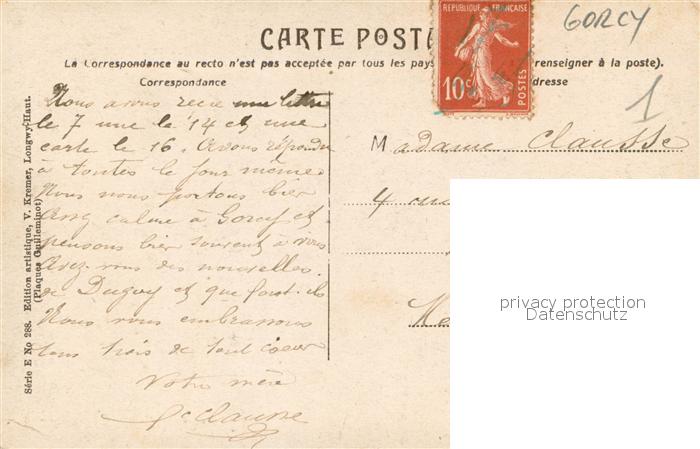 CARTE POSTA
GORCY
La Correspondance au recto n'est pas acceptée par tous les pays renseigner à la poste).
Correspondance
dresse
REPUBLIQUE FRANÇAISE
10c
POSTES
1
Nous avons recu une lettre
le 7 une le 14 et une
carte le 16. Avons répondu
à toutes le jour même
Nous nous portons bien
Assez calme à Gorcy et
pensons bien souvent à vous
Avez-vous des nouvelles
de Dugny et que font-ils
Nous vous embrassons
tous trois de tout coeur
Votre mère
Clausse
Madame Clausse
4
privacy protection
Datenschutz
Série E No 288. Edition artistique, V. Kremer, Longwy-Haut.
(Plaques Guilleminot)